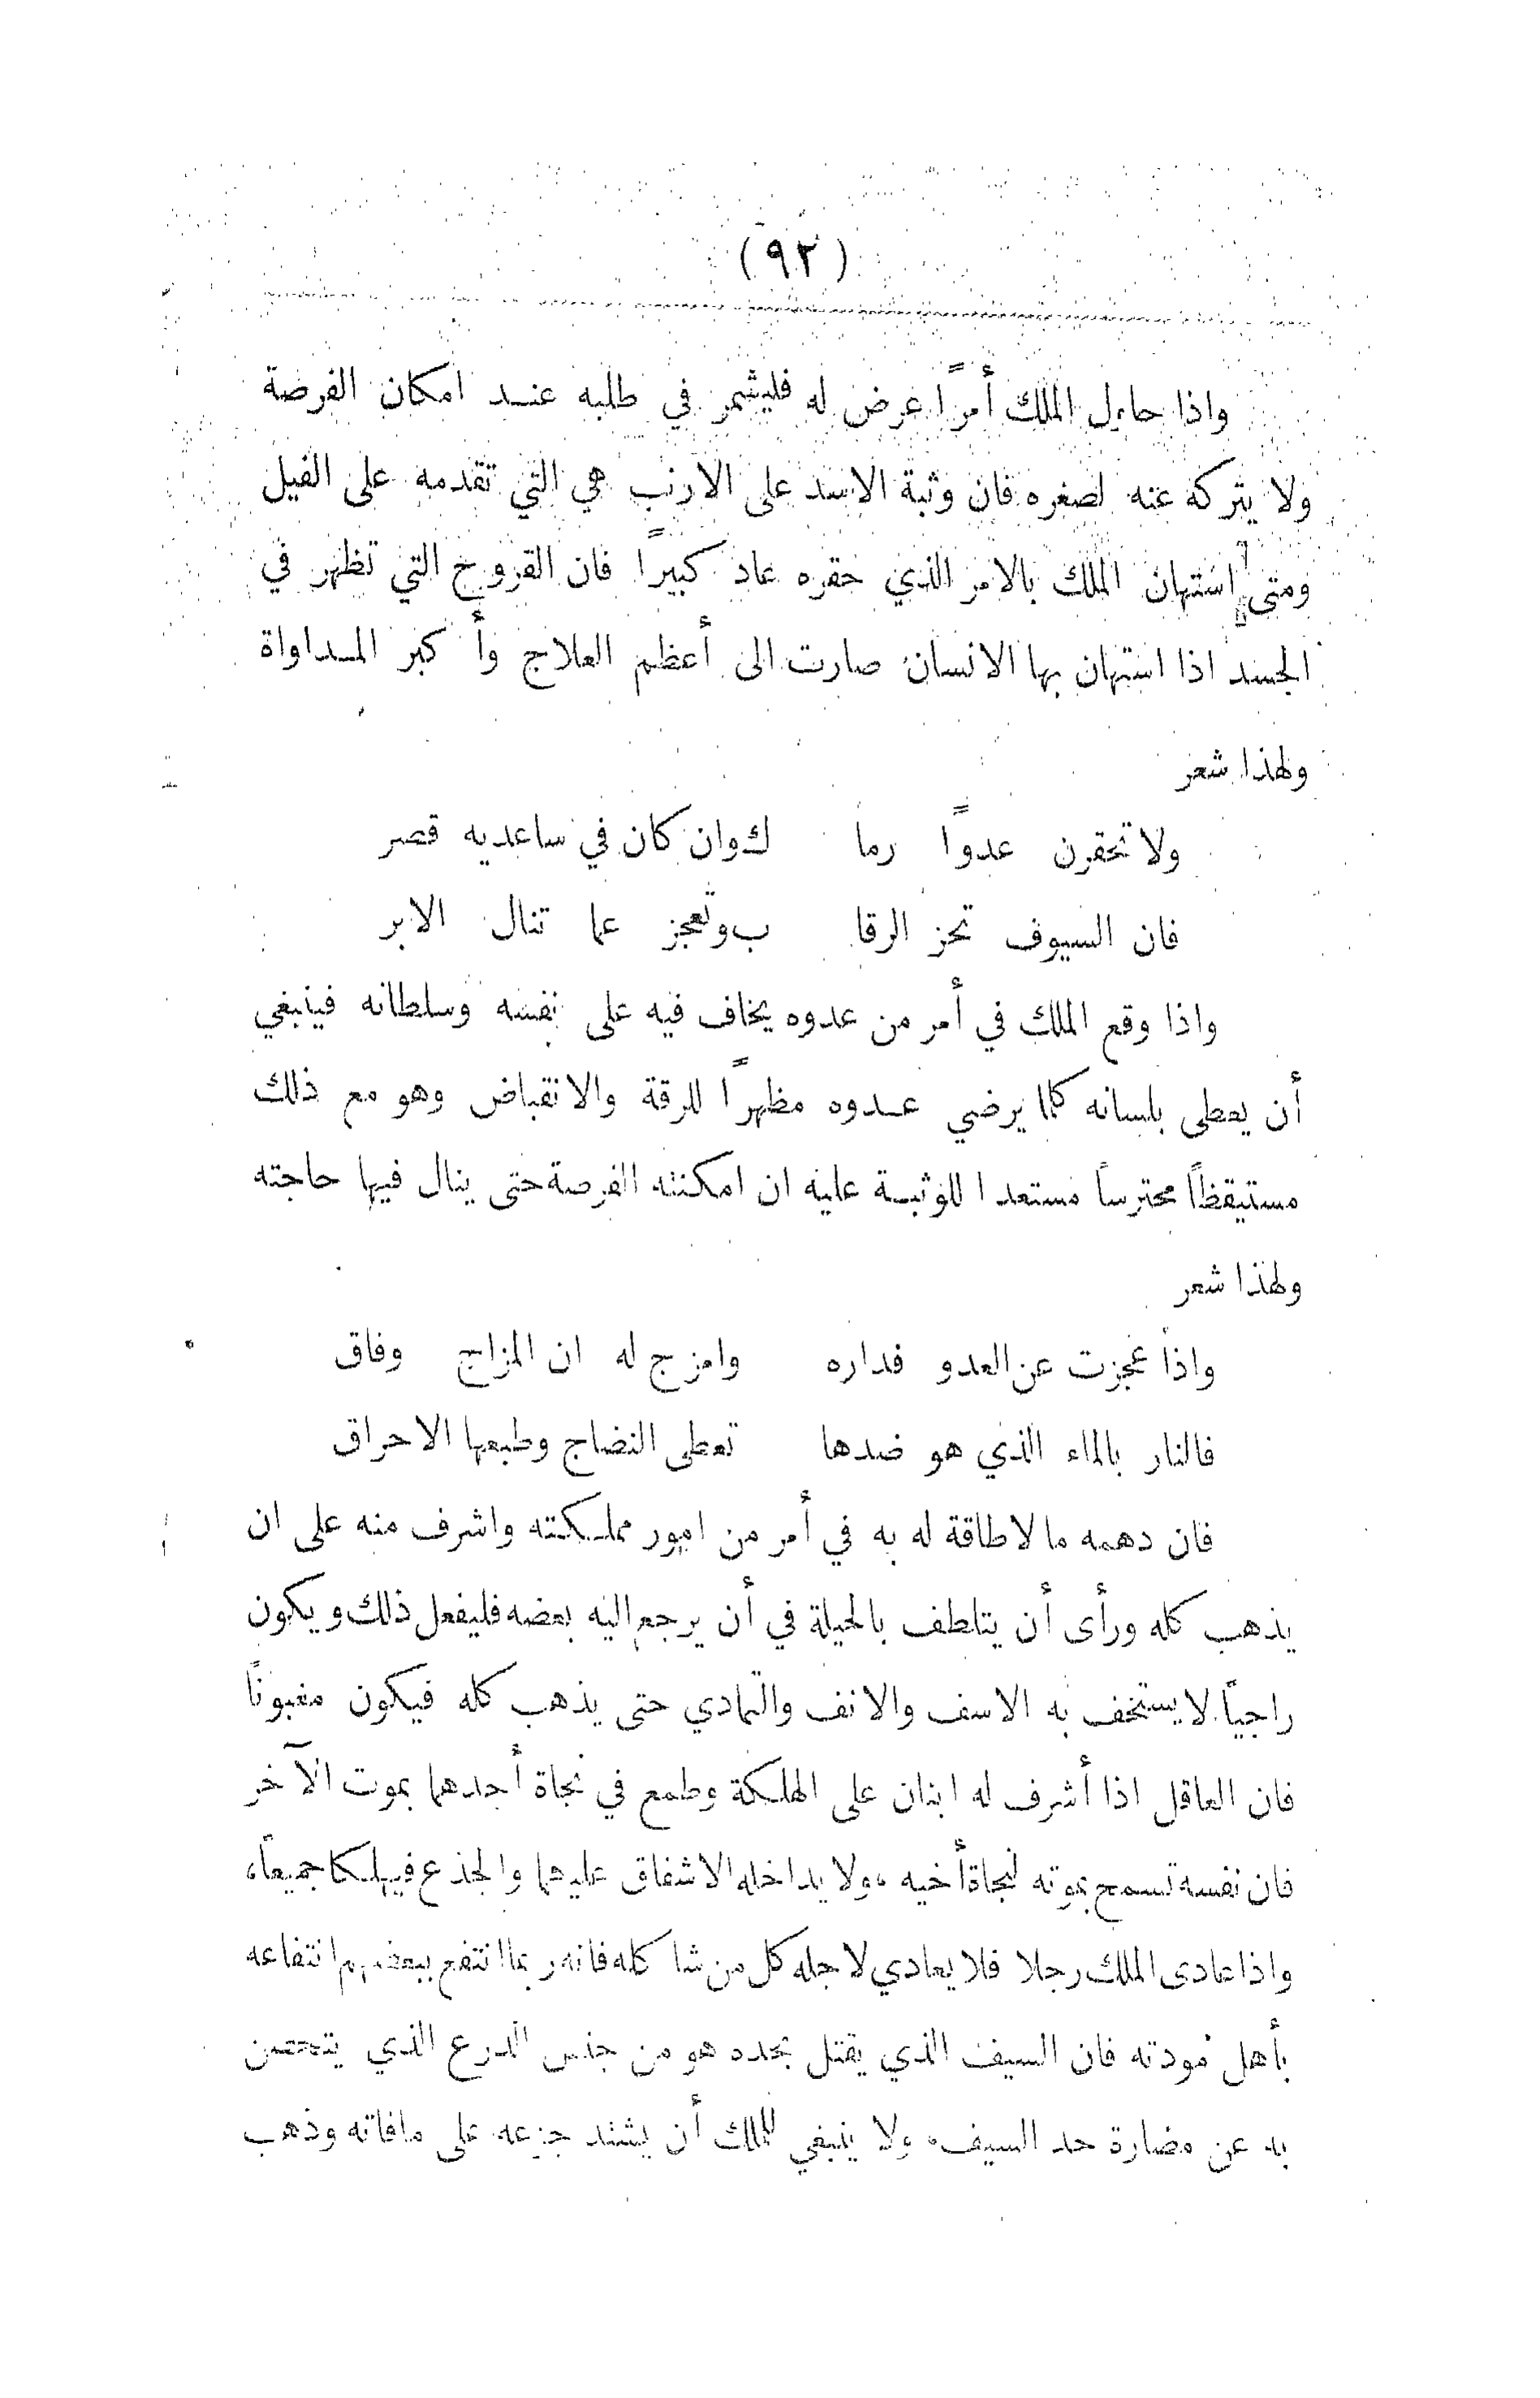 (٩٢)
واذا حاول الملك أمرًا عرض له فليشمر في طلبه عند امكان الفرصة
ولا يتركه عنه لصغره فان وثبة الاسد على الارنب هي التي تقدمه على الفيل
ومتى استهان الملك بالامر الذي حقره عاد كبيرًا فان القروح التي تظهر في
الجسد اذا استهان بها الانسان صارت الى أعظم العلاج وأكبر المداواة
ولهذا شعر
ولا تحقرن عدوًا رما ك وان كان في ساعديه قصر
فان السيوف تحز الرقا ب وتعجز عما تنال الابر
واذا وقع الملك في أمر من عدوه يخاف فيه على نفسه وسلطانه فينبغي
أن يعطي بلسانه كلما يرضي عدوه مظهرًا للرقة والانقباض وهو مع ذلك
مستيقظًا محترسًا مستعدا للوثبة عليه ان امكنته الفرصة حتى ينال فيها حاجته
ولهذا شعر
واذا عجزت عن العدو فداره وامزج له ان المزاج وفاق
فالنار بالماء الذي هو ضدها تعطى النضاج وطبعها الاحراق
فان دهمه ما لا طاقة له به في أمر من امور مملكته واشرف منه على ان
يذهب كله ورأى أن يتلطف بالحيلة في أن يرجع اليه بعضه فليفعل ذلك ويكون
راجيًا لا يستخف به الاسف والانف والتمادي حتى يذهب كله فيكون مغبونًا
فان العاقل اذا أشرف له ابنان على الهلكة وطمع في نجاة أحدهما بموت الآخر
فان نفسه تسمح بموته لنجاة أخيه ، ولا يداخله الاشفاق عليهما والجذع فيهلكا جميعًا ،
واذا عادى الملك رجلا فلا يعادي لاجله كل من شا كله فانه ربما انتفع ببعضهم انتفاعه
بأهل مودته فان السيف الذي يقتل بحده هو من جنس الدرع الذي يتحصن
به عن مضارة حد السيف . ولا ينبغي للملك أن يشتد جزعه على ما فاته وذهب